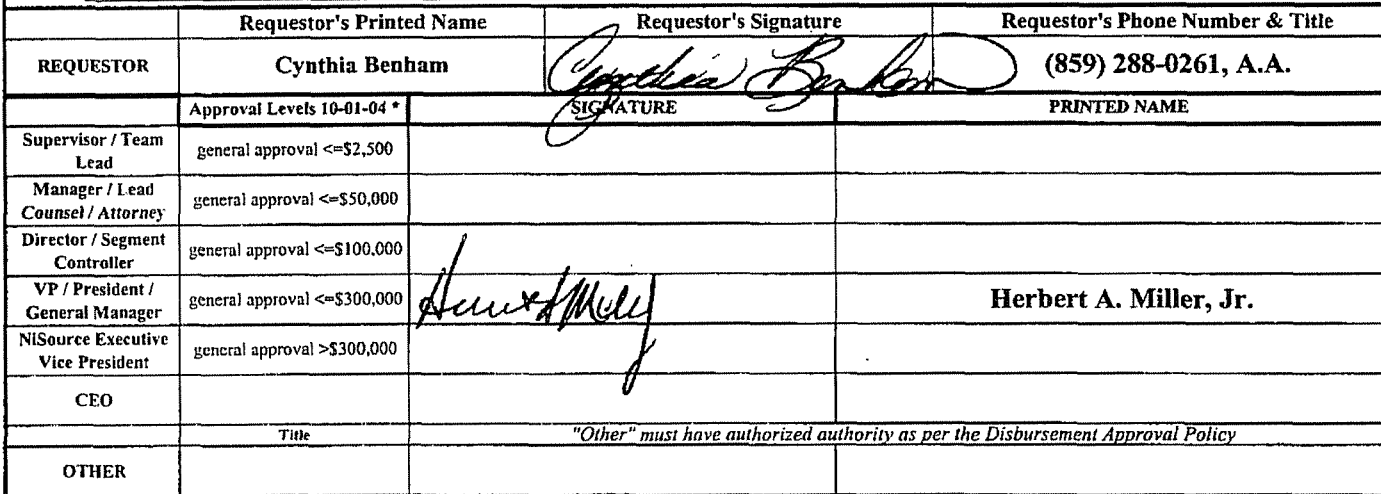 Requestor's Printed Name Requestor's Signature Requestor's Phone Number & Title
REQUESTOR Cynthia Benham Cynthia Benham (859) 288-0261, A.A.
Approval Levels 10-01-04 * SIGNATURE PRINTED NAME
Supervisor / Team
Lead
general approval <=$2,500
Manager / Lead
Counsel / Attorney
general approval <=$50,000
Director / Segment
Controller
general approval <=$100,000
VP / President /
General Manager
general approval <=$300,000
Herbert A. Miller, Jr.
NiSource Executive
Vice President
general approval >$300,000
CEO
Title "Other" must have authorized authority as per the Disbursement Approval Policy
OTHER